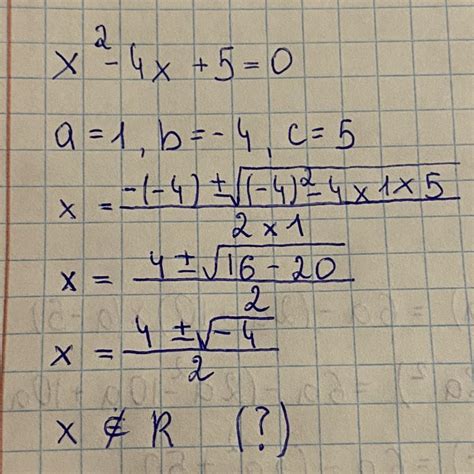 x² - 4x + 5 = 0
a = 1, b = - 4, c = 5
x = (-(-4) ± √((-4)² - 4 × 1 × 5)) / (2 × 1)
x = (4 ± √(16 - 20)) / 2
x = (4 ± √(-4)) / 2
x ∉ R (?)